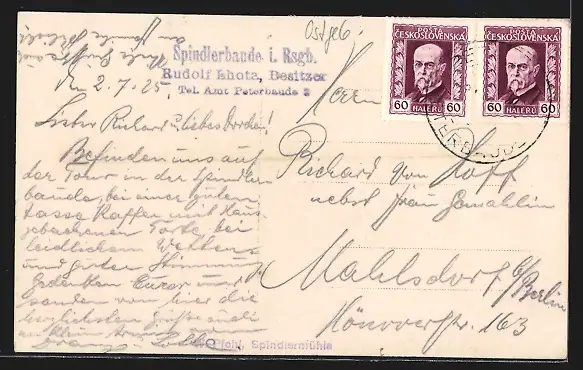 Ostgeb.
Spindlerbaude i. Rsgb.
Rudolf Lhota, Besitzer
Tel. Amt Peterbaude 3
2.7.25
Lieber Richard u. liebes Dorchen!
Befinden uns auf
der Tour in der Spindler
baude, bei einer guten
Tasse Kaffee und Haus
gebackenen Torte, bei
leidlichem Wetter
und guter Stimmung
gedenken Eurer und
senden von hier die
herzlichsten Grüße
POSTA
ČESKOSLOVENSKÁ
60 HALÉŘŮ 60
POSTA
ČESKOSLOVENSKÁ
60 HALÉŘŮ 60
Herrn
Richard von Hoff
nebst Frau Gemahlin
Mahlsdorf b/Berlin
Hönowerstr. 163
Spindlermühle